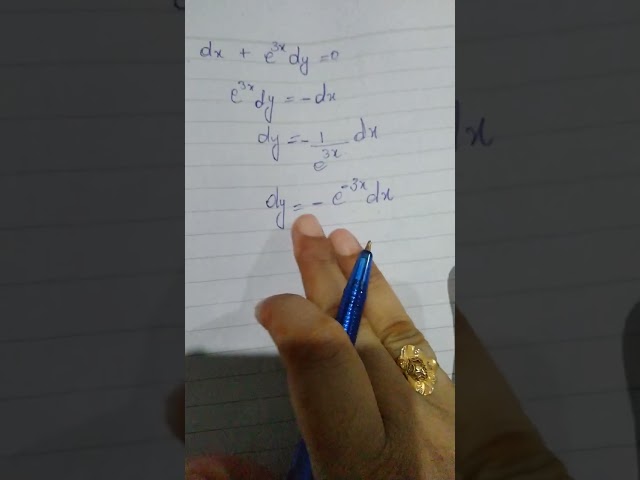 dx + e^3x dy = 0
e^3x dy = - dx
dy = - 1/e^3x dx
dy = - e^-3x dx